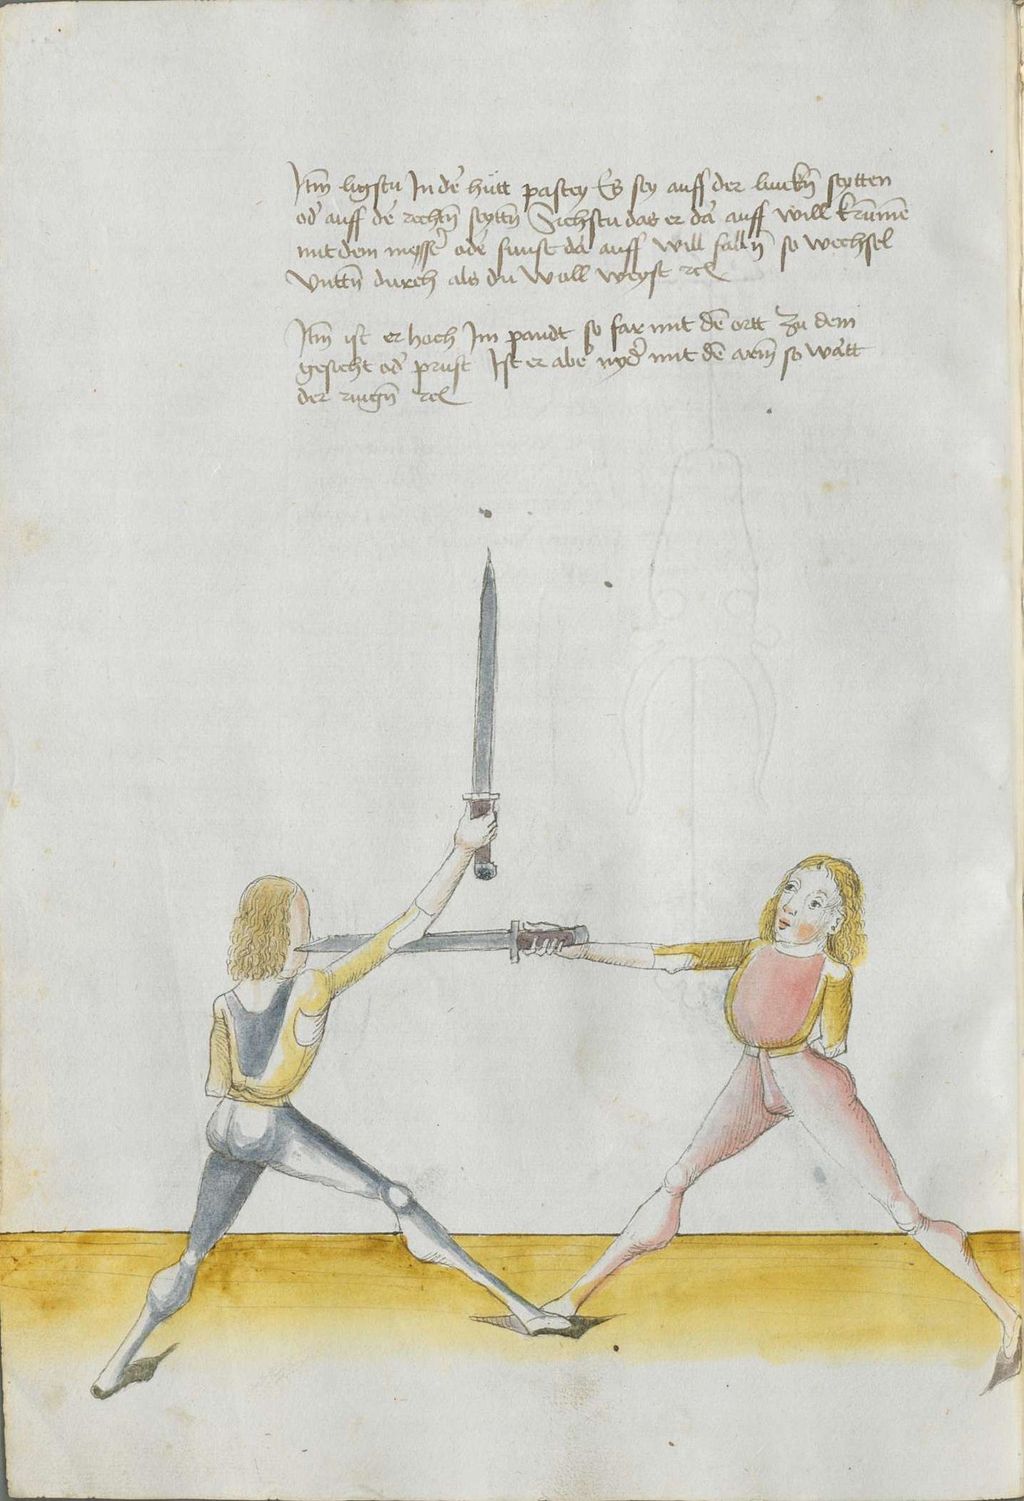 Itm ligstu In de᷑ hütt pastey Es sey auff der linckn̄ seytten
od᷑ auff de᷑ rechtn̄ seyttn̄ Siehstu das er da᷑ auff will krūmē
mit dem messe᷑ ode᷑ sunst da᷑ auff will falln̄ so wechsel
Unttn̄ durch als du woll weyst rcl
Itm̄ ist er hoch Im pandt so far mit dē ortt zu dem
gesicht od᷑ prust Ist er abe᷑ nyd᷑ mit dē arm̄ so wartt
der ringn̄ rcl